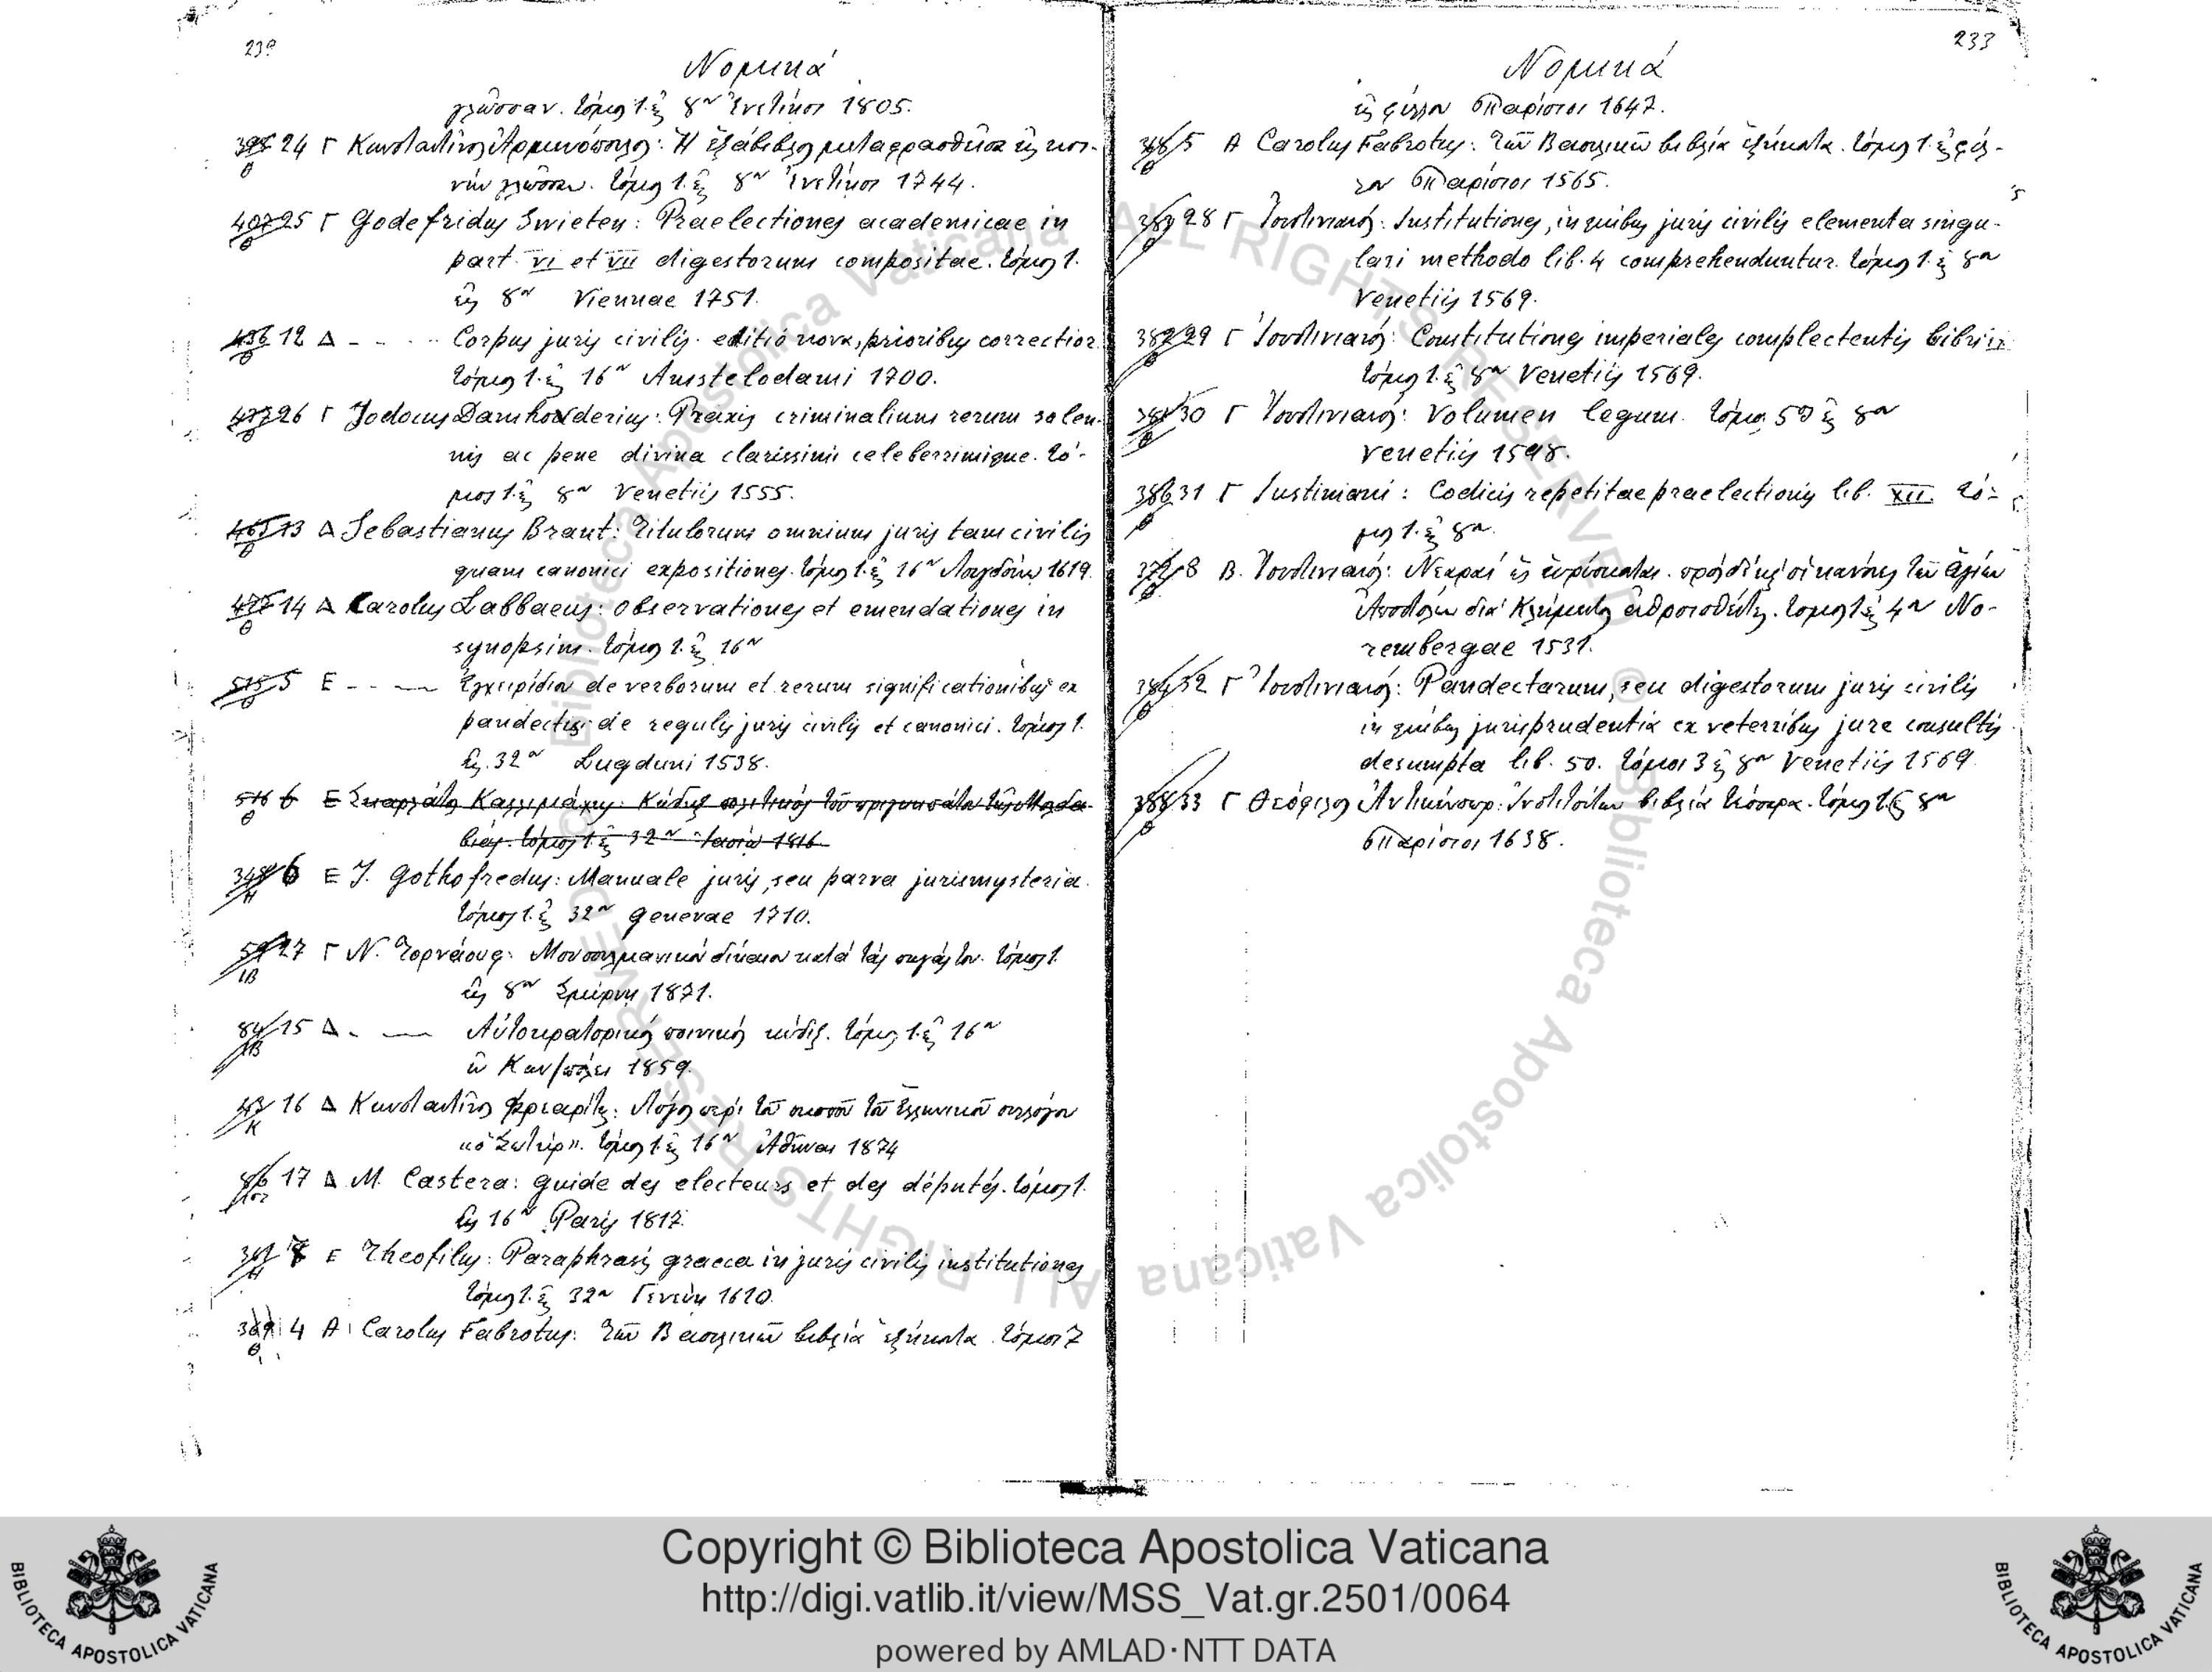 239
Νομικά
γλῶσσαν. τόμος 1. εἰς 8ον Ἐνετίῃσι 1805.
398 24 Γ Κωνσταντῖνος Ἀρμενόπουλος: Ἡ ἑξάβιβλος μεταφρασθεῖσα εἰς κοι-
Θ
νὴν γλῶσσαν. τόμος 1. εἰς 8ον Ἐνετίῃσι 1744.
407 25 Γ Godefridus Swieten: Praelectiones academicae in
Θ
part. VI et VII digestorum compositae. τόμος 1.
εἰς 8ον Viennae 1751.
436 12 Δ - - - - Corpus juris civilis. editio nova, prioribus correctior
Θ
τόμος 1. εἰς 16ον Amstelodami 1700.
26 Γ Jodocus Damhouderius: Praxis criminalium rerum solen-
nis ac pene divina clarissimi celeberrimique. τό-
μος 1. εἰς 8ον Venetiis 1555.
13 Δ Sebastianus Brant: Titulorum omnium juris tam civilis
Θ
quam canonici expositiones. τόμος 1. εἰς 16ον Λουγδούνῳ 1619.
14 Δ Carolus Labbaeus: Observationes et emendationes in
Θ
synopsim. τόμος 1. εἰς 16ον
515 5 Ε - - — Ἐγχειρίδιον de verborum et rerum significationibus ex
Θ
pandectis. de regulis juris civilis et canonici. τόμος 1.
εἰς 32ον Lugduni 1538.
516 6 Ε Σκαρλάτος Καλλιμάχης: Κώδιξ πολιτικὸς τοῦ πριγκιπάτου τῆς Μολδα-
Θ
βίας. τόμος 1. εἰς 32ον Ἰασίῳ 1816
348 6 Ε J. Gothofredus: Manuale juris, seu parva juris mysteria.
Η
τόμος 1. εἰς 32ον Genevae 1710.
27 Γ Ν. Τορνάουφ: Μουσουλμανικὸν δίκαιον κατὰ τὰς πηγάς του. τόμος 1.
ΙΒ
εἰς 8ον Σμύρνῃ 1871.
84 15 Δ. — Αὐτοκρατορικὸς ποινικὸς κῶδιξ. τόμος 1. εἰς 16ον
ΙΒ
ἐν Κων/πόλει 1859.
43 16 Δ Κωνσταντῖνος Φρεαρίτης: Λόγος περὶ τοῦ σκοποῦ τοῦ ἑλληνικοῦ συλλόγου
Κ
«ὁ Σωτήρ». τόμος 1. εἰς 16ον Ἀθῆναι 1874
86 17 Δ M. Castera: guide des electeurs et des députés. τόμος 1.
εἰς 16ον Paris 1817.
341 8 Ε Theofilus: Paraphrasis graeca in juris civilis institutiones
Η
τόμος 1. εἰς 32ον Γενεύῃ 1610.
369 4 Α Carolus Fabrotus: Τῶν Βασιλικῶν βιβλία ἑξήκοντα. τόμοι 7
Θ
233
Νομικά
εἰς φύλλον Παρίσιοι 1647.
5 Α Carolus Fabrotus: Τῶν Βασιλικῶν βιβλία ἑξήκοντα. τόμος 1. εἰς φύλ-
Θ
λον Παρίσιοι 1565.
28 Γ Ἰουστινιανός: Institutiones, in quibus juris civilis elementa singu-
Θ
lari methodo lib. 4 comprehenduntur. τόμος 1. εἰς 8ον
Venetiis 1569.
29 Γ Ἰουστινιανός: Constitutiones imperiales complectentis libri IX
τόμος 1. εἰς 8ον Venetiis 1569.
30 Γ Ἰουστινιανός: Volumen legum. τόμοι 50 εἰς 8ον
Venetiis 1598.
386 31 Γ Justiniani: Codicis repetitae praelectionis lib. XII. τό-
μος 1. εἰς 8ον.
8 Β. Ἰουστινιανός: Νεαραὶ αἱ εὑρίσκονται. πρόσθες οἱ κανόνες τῶν ἁγίων
Ἀποστόλων διὰ Κλήμεντος ἀθροισθέντες. τόμος 1 εἰς 4ον No-
rembergae 1531.
384 32 Γ Ἰουστινιανός: Pandectarum, seu digestorum juris civilis
in quibus jurisprudentia ex veterribus jure consultis
desumpta lib. 50. τόμοι 3 εἰς 8ον Venetiis 1569
388 33 Γ Θεόφιλος Ἀντικήνσωρ: Ἰνστιτούτων βιβλία τέσσαρα. τόμος 1 εἰς 8ον
Θ
Παρίσιοι 1638.
ALL RIGHTS RESERVED © Biblioteca Apostolica Vaticana
Copyright © Biblioteca Apostolica Vaticana
http://digi.vatlib.it/view/MSS_Vat.gr.2501/0064
powered by AMLAD·NTT DATA
BIBLIOTECA APOSTOLICA VATICANA
BIBLIOTECA APOSTOLICA VATICANA